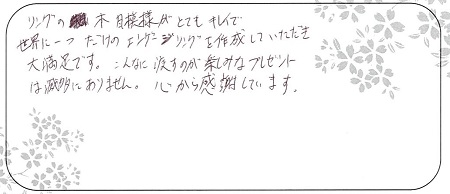 リングの木目模様がとてもキレイで
世界に一つだけのエンゲージリングを作成していただき
大満足です。こんなに渡すのが楽しみなプレゼント
は滅多にありません。心から感謝しています。